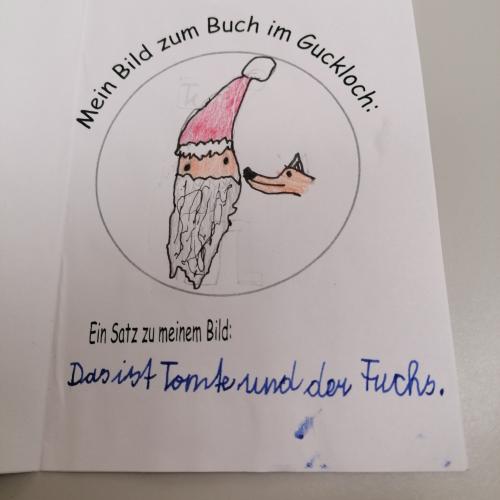 Mein Bild zum Buch im Guckloch:
Ein Satz zu meinem Bild:
Das ist Tomte und der Fuchs.